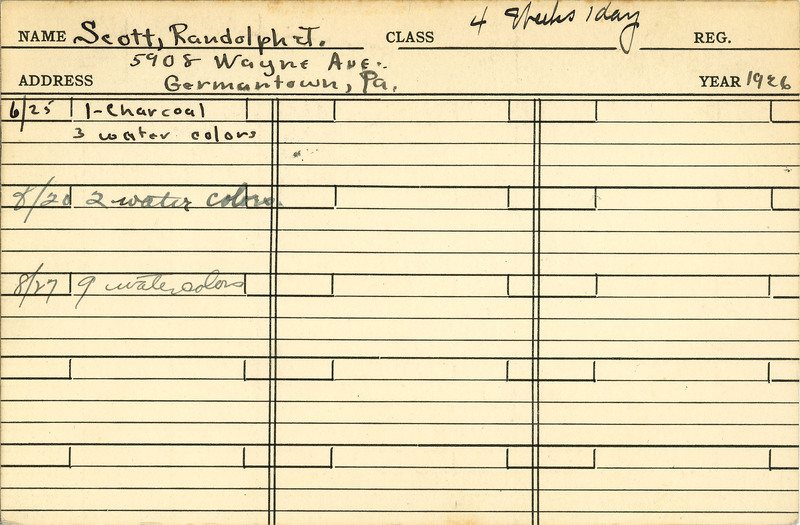 NAME Scott, Randolph T. CLASS 4 Weeks 1 day REG.
5908 Wayne Ave.
ADDRESS Germantown, Pa. YEAR 1926
6/25 1-Charcoal
3 water colors
8/20 2 water colors.
8/27 9 watercolors